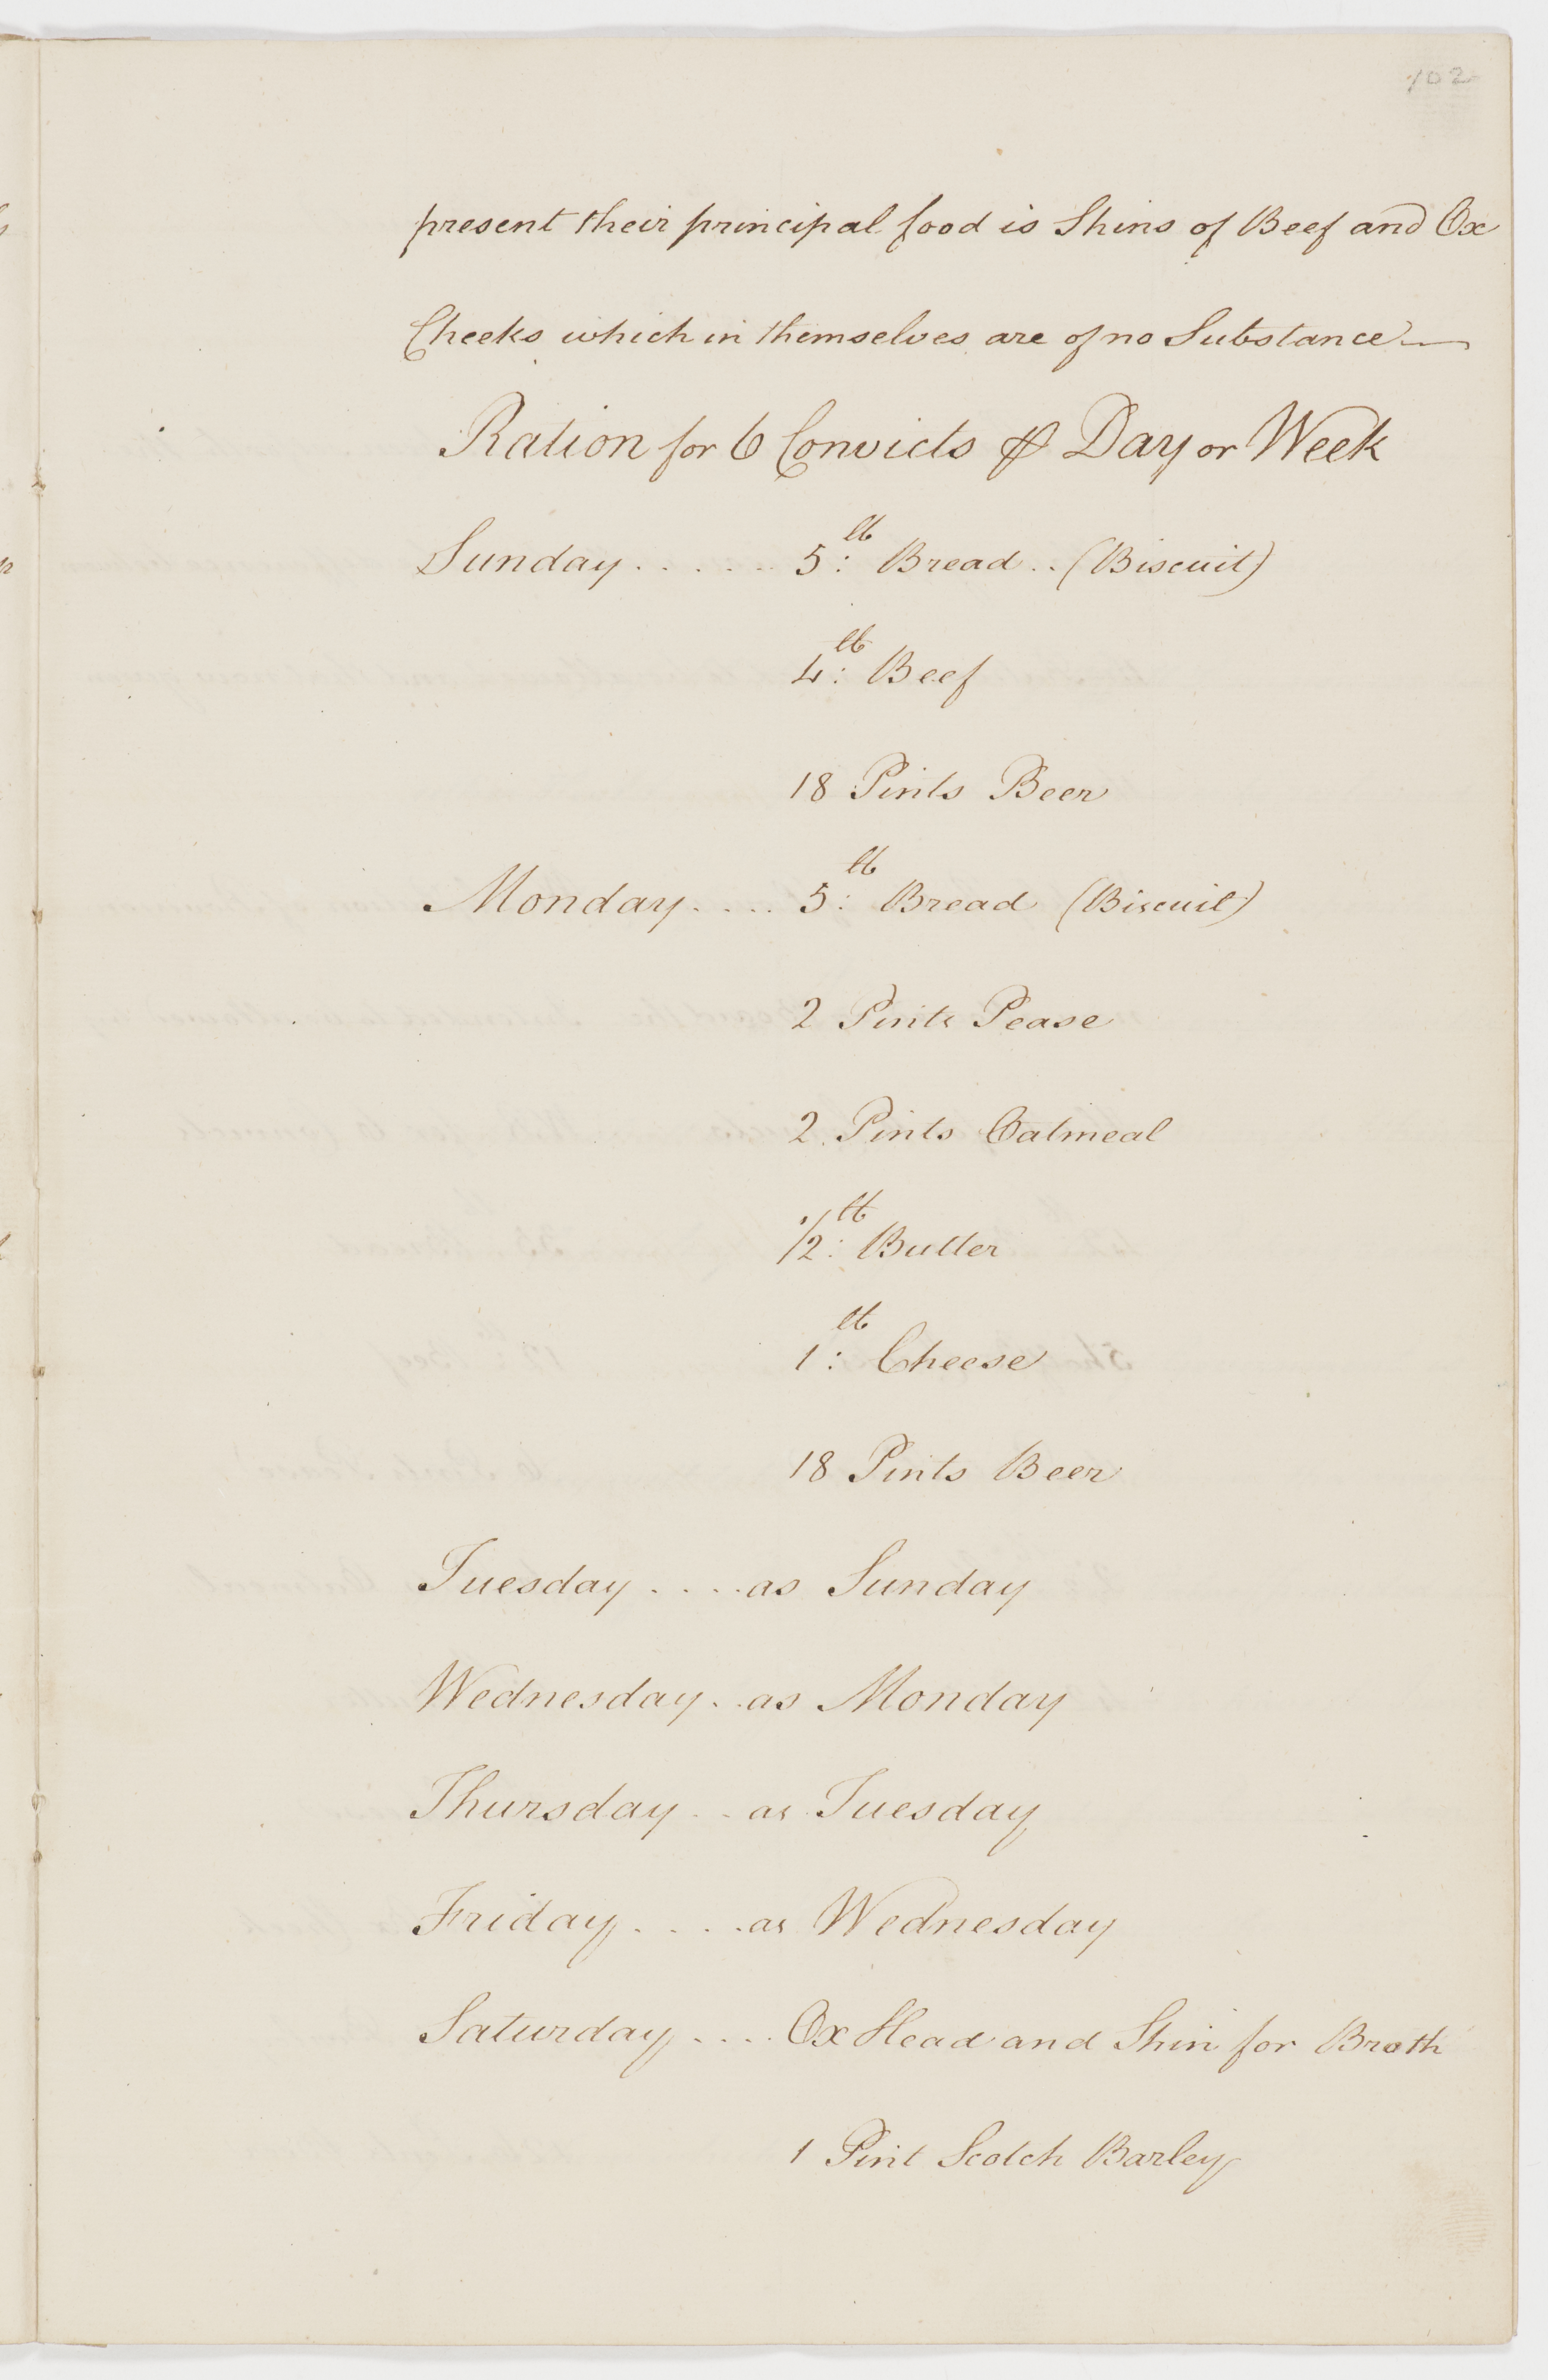 102
present their principal food is Shins of Beef and Ox
Cheeks which in themselves are of no Substance —
Ration for 6 Convicts ⅌ Day or Week
Sunday . . . . . . 5: lb Bread . . (Biscuit)
4: lb Beef
18 Pints Beer
Monday . . . . 5: lb Bread (Biscuit)
2 Pints Pease
2 Pints Oatmeal
1/2: lb Butter
1: lb Cheese
18 Pints Beer
Tuesday . . . . as Sunday
Wednesday . . as Monday
Thursday . . as Tuesday
Friday . . . . as Wednesday
Saturday . . . . Ox Head and Shin for Broth
1 Pint Scotch Barley